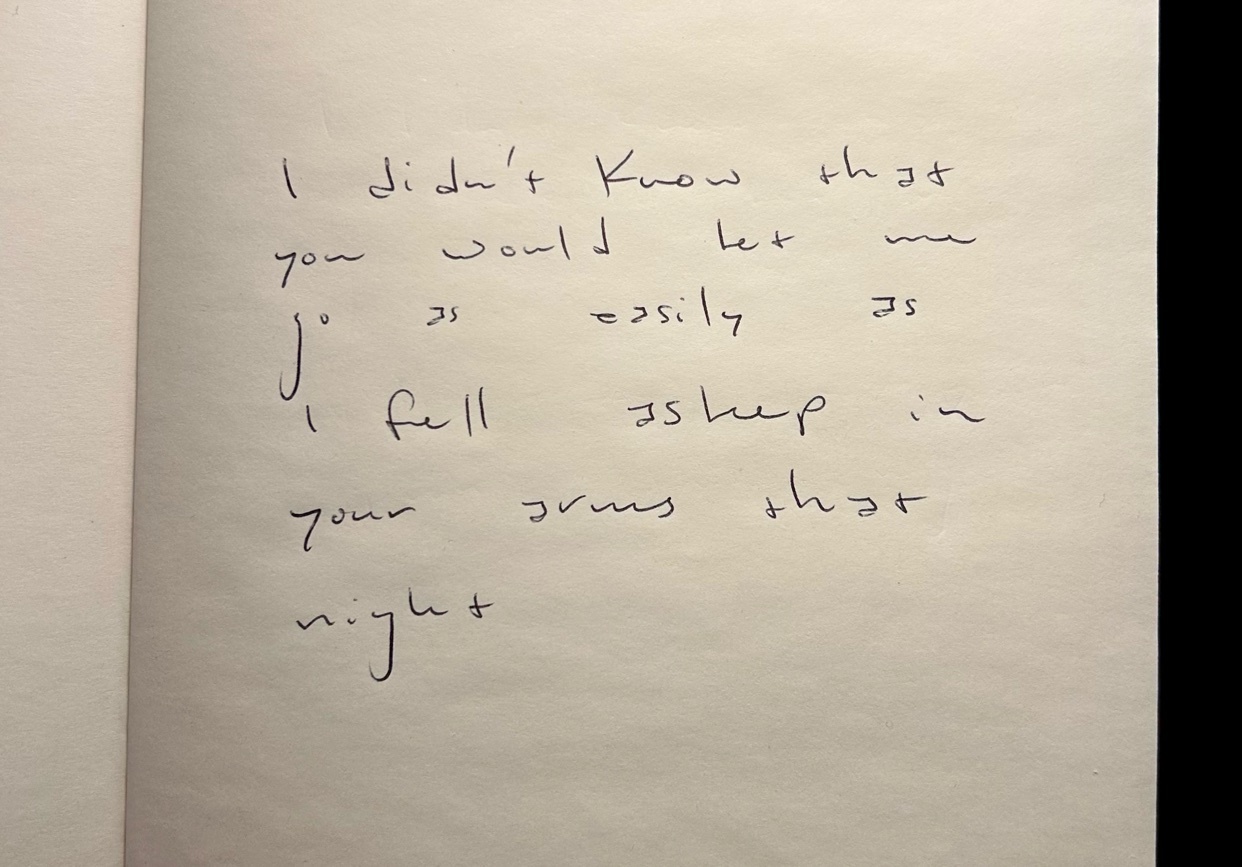 I didn't know that
you would let me
go as easily as
I fell asleep in
your arms that
night